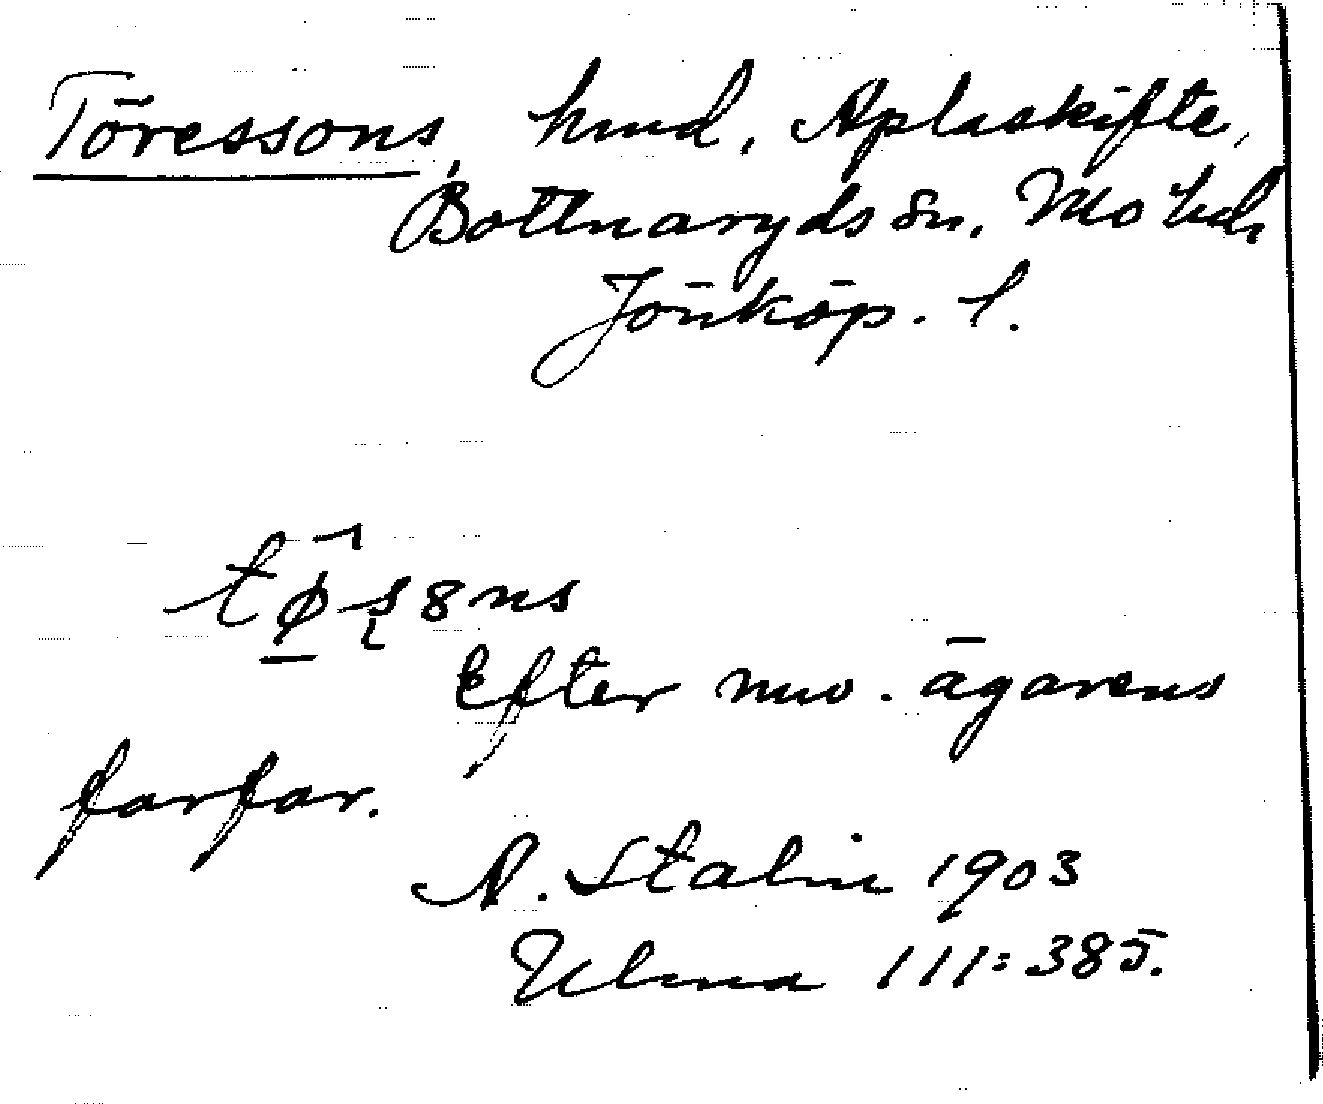 Töressons, hmd, Aplaskifte,
Bottnaryds sn. Mo hd,
Jönköp. l.
Efter nuv. ägarens
farfar.
A. Stalin 1903
Ulma 111:385.